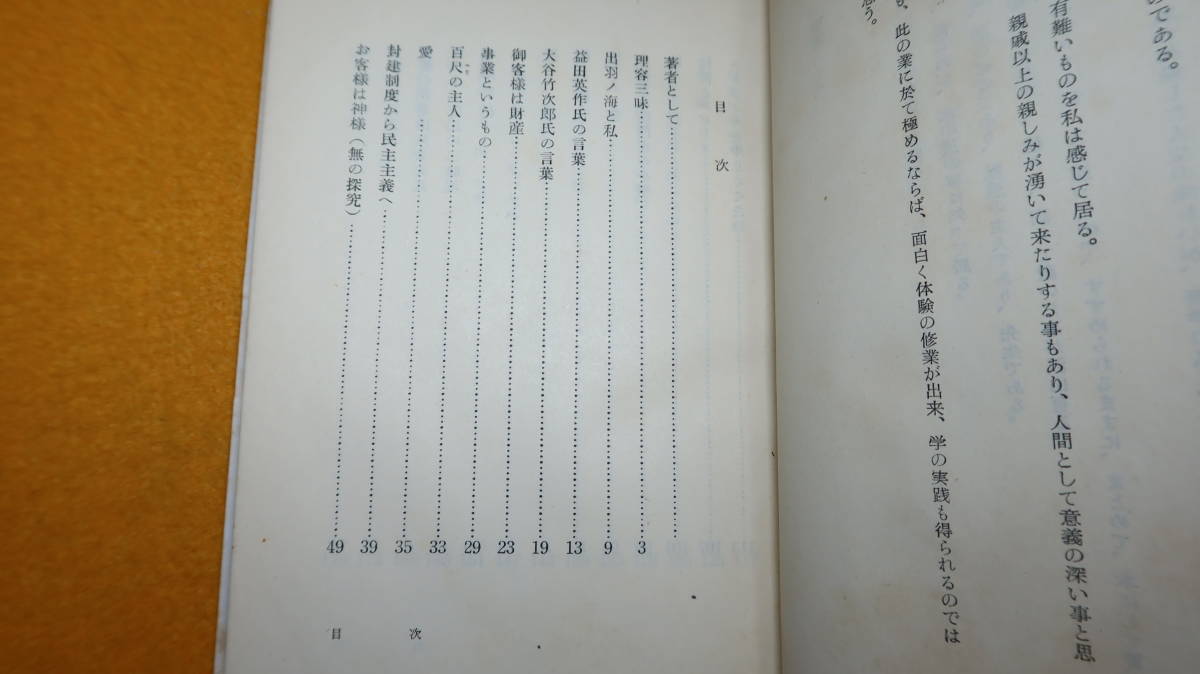 のである。
有難いものを私は感じて居る。
親戚以上の親しみが湧いて来たりする事もあり、人間として意義の深い事と思
思う。
此の業に於て極めるならば、面白く体験の修業が出来、学の実践も得られるのでは
目次
著者として
理容三昧 3
出羽ノ海と私 9
益田英作氏の言葉 13
大谷竹次郎氏の言葉 19
御客様は財産 23
事業というもの 29
百尺の主人 33
愛 35
封建制度から民主主義へ 39
お客様は神様(無の探究) 49
目次